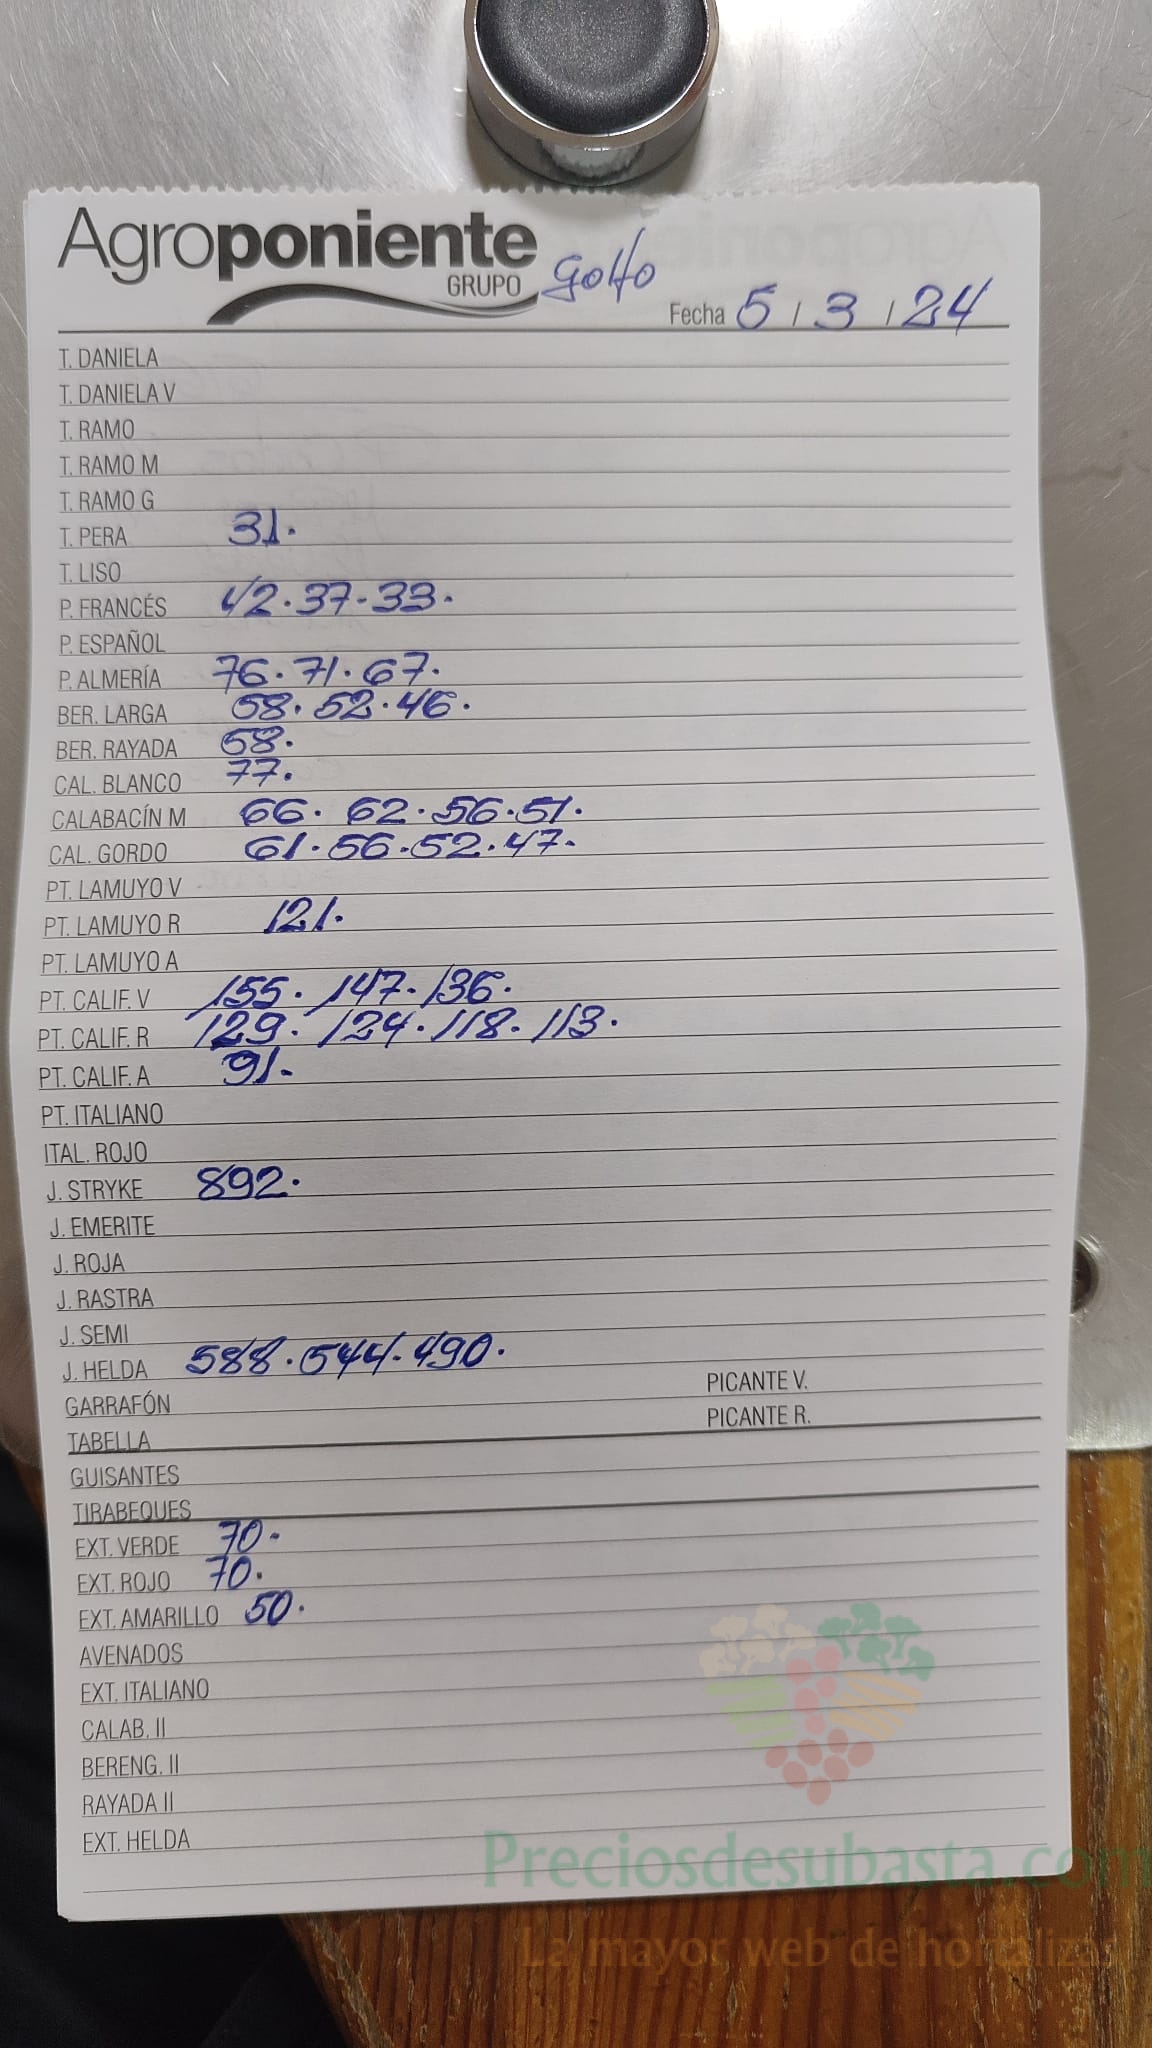 Agroponiente
GRUPO
Golfo
Fecha 5 / 3 / 24
T. DANIELA
T. DANIELA V
T. RAMO
T. RAMO M
T. RAMO G
T. PERA 31.
T. LISO
P. FRANCÉS 42.37-33.
P. ESPAÑOL
P. ALMERÍA 76.71.67.
BER. LARGA 58.52.46.
BER. RAYADA 58.
CAL. BLANCO 77.
CALABACÍN M 66. 62.56.51.
CAL. GORDO 61.56.52.47.
PT. LAMUYO V
PT. LAMUYO R 121.
PT. LAMUYO A
PT. CALIF. V 155. 147.136.
PT. CALIF. R 129. 124.118.113.
PT. CALIF. A 91.
PT. ITALIANO
ITAL. ROJO
J. STRYKE 892.
J. EMERITE
J. ROJA
J. RASTRA
J. SEMI
J. HELDA 588.544.490.
GARRAFÓN PICANTE V.
TABELLA PICANTE R.
GUISANTES
TIRABEQUES
EXT. VERDE 70.
EXT. ROJO 70.
EXT. AMARILLO 50.
AVENADOS
EXT. ITALIANO
CALAB. II
BERENG. II
RAYADA II
EXT. HELDA
Preciosdesubasta.com
La mayor web de hortalizas